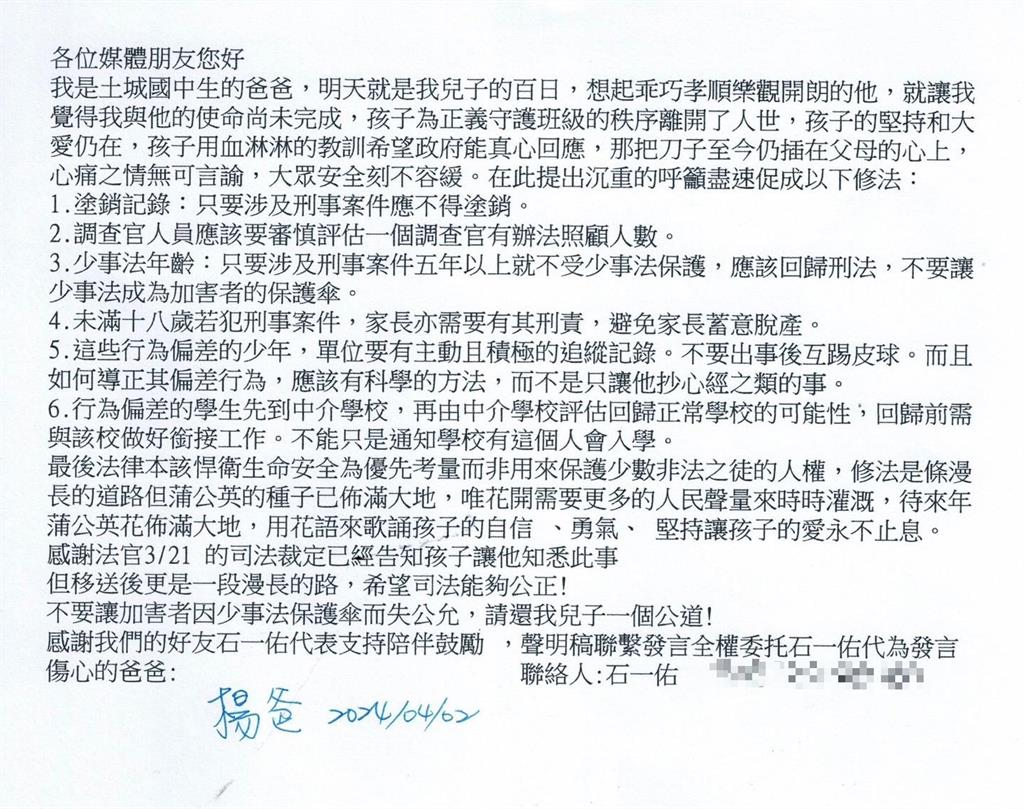 各位媒體朋友您好
我是土城國中生的爸爸，明天就是我兒子的百日，想起乖巧孝順樂觀開朗的他，就讓我
覺得我與他的使命尚未完成，孩子為正義守護班級的秩序離開了人世，孩子的堅持和大
愛仍在，孩子用血淋淋的教訓希望政府能真心回應，那把刀子至今仍插在父母的心上，
心痛之情無可言諭，大眾安全刻不容緩。在此提出沉重的呼籲盡速促成以下修法：
1.塗銷記錄：只要涉及刑事案件應不得塗銷。
2.調查官人員應該要審慎評估一個調查官有辦法照顧人數。
3.少事法年齡：只要涉及刑事案件五年以上就不受少事法保護，應該回歸刑法，不要讓
少事法成為加害者的保護傘。
4.未滿十八歲若犯刑事案件，家長亦需要有其刑責，避免家長蓄意脫產。
5.這些行為偏差的少年，單位要有主動且積極的追縱記錄。不要出事後互踢皮球。而且
如何導正其偏差行為，應該有科學的方法，而不是只讓他抄心經之類的事。
6.行為偏差的學生先到中介學校，再由中介學校評估回歸正常學校的可能性，回歸前需
與該校做好銜接工作。不能只是通知學校有這個人會入學。
最後法律本該悍衛生命安全為優先考量而非用來保護少數非法之徒的人權，修法是條漫
長的道路但蒲公英的種子已佈滿大地，唯花開需要更多的人民聲量來時時灌溉，待來年
蒲公英花佈滿大地，用花語來歌誦孩子的自信 、勇氣、 堅持讓孩子的愛永不止息。
感謝法官3/21 的司法裁定已經告知孩子讓他知悉此事
但移送後更是一段漫長的路，希望司法能夠公正!
不要讓加害者因少事法保護傘而失公允，請還我兒子一個公道!
感謝我們的好友石一佑代表支持陪伴鼓勵 ，聲明稿聯繫發言全權委托石一佑代為發言
傷心的爸爸: 聯絡人:石一佑
楊爸 2024/04/02